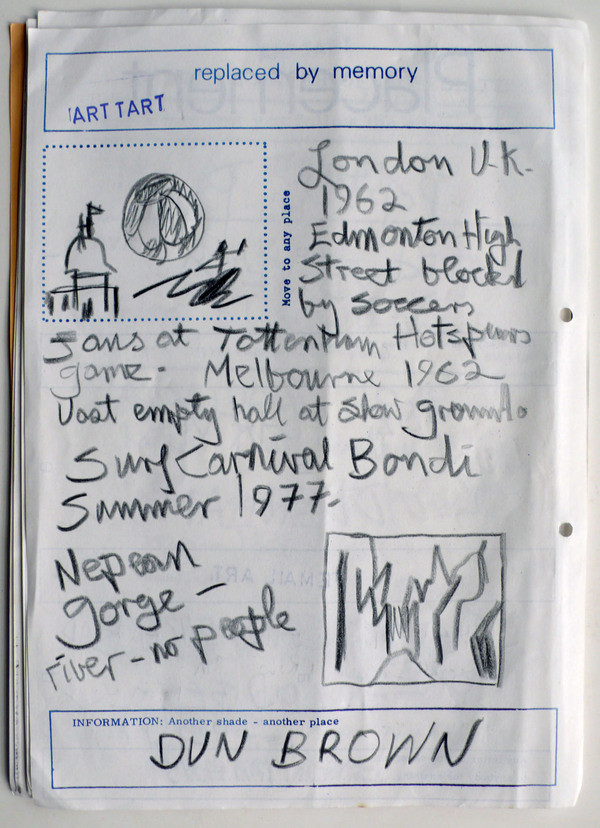 replaced by memory
ART TART
London U.K.
1962
Edmonton High
Street blocked
by soccers
Move to any place
Fans at Tottenham Hotspurs
game - Melbourne 1962
Vast empty hall at show grounds
Surf Carnival Bondi
Summer 1977-
Nepean
gorge -
river - no people
EMAIL ART
INFORMATION: Another shade - another place
DUN BROWN